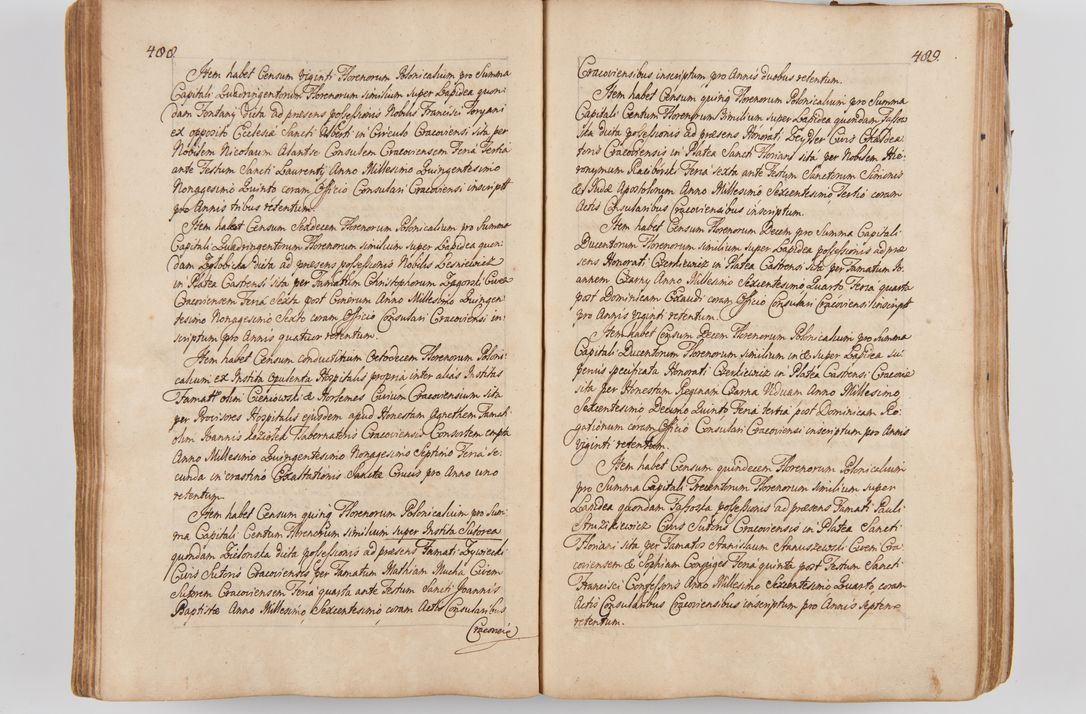 488.
Item habet Censum viginti Florenorum Polonicalium pro Summa
Capitali Quadringentorum Florenorum similium super Lapidea quon-
dam Fontany dicta ad præsens possessionis Nobilis Francisci Toryani
ex opposito Ecclesiæ Sancti Alberti in Circulo Cracoviensi sita per
Nobilem Nicolaum Consulem Cracoviensem Feria Tertia
ante Festum Sancti Laurentij Anno Millesimo Quingentesimo
Nonagesimo Quinto coram Officio Consulari Cracoviensi inscript
pro Annis tribus retentum.
Item habet Censum Sexdecem Florenorum Polonicalium pro Summa
Capitali Quadringentorum Florenorum similium super Lapidea quon-
dam dicta ad præsens possessionis Nobilis
in Platea Castrensi sita per Famatum Christophorum Zagorski Civem
Cracoviensem Feria Sexta post Cinerum Anno Millesimo Quingen-
tesimo Nonagesimo Sexto coram Officio Consulari Cracoviensi in-
scriptum pro Annis quatuor retentum.
Item habet Censum conductitium Octodecem Florenorum Poloni-
calium ex Instita Opulenta Hospitalis propria inter alias Institas
Famati olim & Civium Cracoviensium sita
per Provisores Hospitalis ejusdem apud Honestam Agnethem Famati
olim Joannis Tabernatoris Cracoviensis Consortem empta
Anno Millesimo Quingentesimo Nonagesimo Septimo Feria Se-
cunda in crastino Exaltationis Sanctæ Crucis pro Anno uno
retentum.
Item habet Censum quinq Florenorum Polonicalium pro Sum-
ma Capitali Centum Florenorum similium super Instita Sutorea
quondam Zielonska dicta possessionis ad præsens Famati Zywiecki
Civis Sutoris Cracoviensis per Famatum Mathiam Mucha Civem
Cracoviensem Feria quarta ante Festum Sancti Joannis
Baptistæ Anno Millesimo Sexcentesimo coram Actis Consularibus
Cracovien
489.
Cracoviensibus inscriptum pro Annis duobus retentum.
Item habet Censum quinq Florenorum Polonicalium pro Summa
Capitali Centum Florenorum Similium super Lapidea quondam
dicta possessionis ad præsens Honorati Zeydler Civis
Cracoviensis in Platea Sancti Floriani sita per Nobilem Hie-
ronymum Feria sexta ante Festum Sanctorum Simonis
& Judæ Apostolorum Anno Millesimo Sexcentesimo Tertio coram
Actis Consularibus Cracoviensibus inscriptum.
Item habet Censum Florenorum Decem pro Summa Capitali
Ducentorum Florenorum similium super Lapidea possessionis ad præ-
sens Honorati Czerkiewicz in Platea Castrensi sita per Famatum Jo-
annem Czarny Anno Millesimo Sexcentesimo Quarto Feria quarta
post Dominicam Exaudi coram Officio Consulari Cracoviensi inscript
pro Annis viginti retentum.
Item habet Censum Decem Florenorum Polonicalium pro Summa
Capitali Ducentorum Florenorum similium in & super Lapidea su-
perius specificata Honorati Czerkiewicz in Platea Castrensi Cracoviæ
sita per Honestam Reginam Czarna Viduam Anno Millesimo
Sexcentesimo Decimo Quinto Feria tertia post Dominicam Ro-
gationum coram Officio Consulari Cracoviensi inscriptum pro Annis
viginti retentum.
Item habet Censum quindecem Florenorum Polonicalium
pro Summa Capitali Trecentorum Florenorum similium super
Lapidea quondam possessionis ad præsens Famati Pauli
Civis Sutoris Cracoviensis in Platea Sancti
Floriani sita per Famatos Stanislaum Civem Cra-
coviensem & Sophiam Conjuges Feria quinta post Festum Sancti
Francisci Confessoris Anno Millesimo Sexcentesimo Quarto coram
Actis Consularibus Cracoviensibus inscriptum pro Annis Septem
retentum.